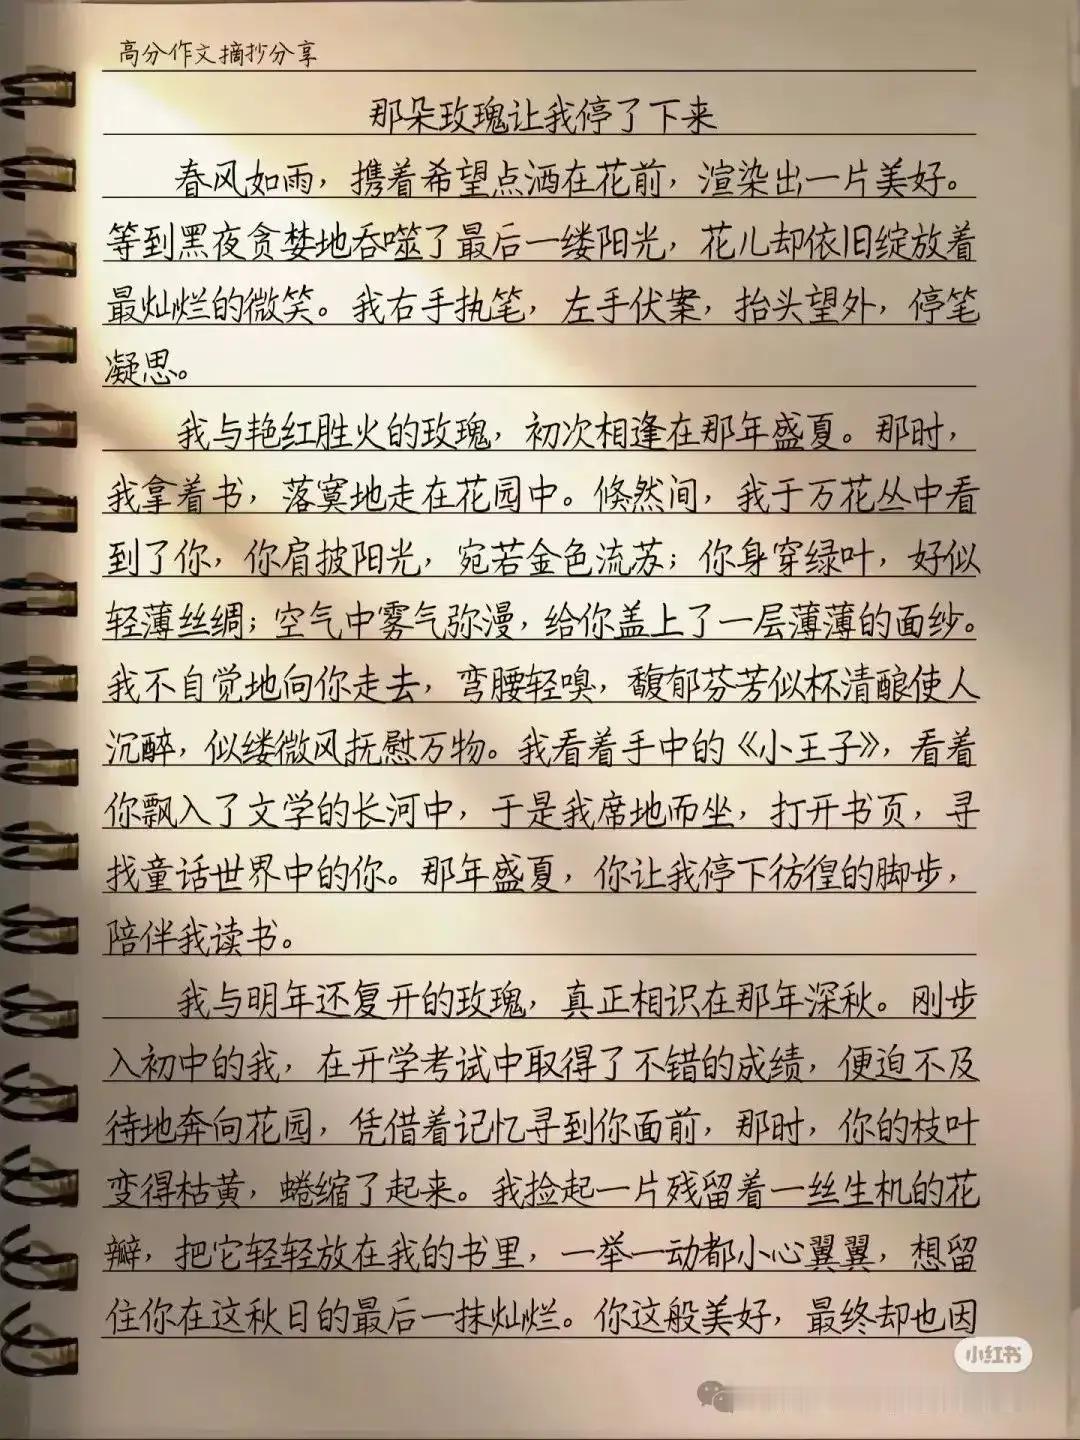 高分作文摘抄分享
那朵玫瑰让我停了下来
春风如雨，携着希望点洒在花前，渲染出一片美好。
等到黑夜贪婪地吞噬了最后一缕阳光，花儿却依旧绽放着
最灿烂的微笑。我右手执笔，左手伏案，抬头望外，停笔
凝思。
我与艳红胜火的玫瑰，初次相逢在那年盛夏。那时，
我拿着书，落寞地走在花园中。倏然间，我于万花丛中看
到了你，你肩披阳光，宛若金色流苏；你身穿绿叶，好似
轻薄丝绸；空气中雾气弥漫，给你盖上了一层薄薄的面纱。
我不自觉地向你走去，弯腰轻嗅，馥郁芬芳似杯清酿使人
沉醉，似缕微风抚慰万物。我看着手中的《小王子》，看着
你飘入了文学的长河中，于是我席地而坐，打开书页，寻
找童话世界中的你。那年盛夏，你让我停下彷徨的脚步，
陪伴我读书。
我与明年还复开的玫瑰，真正相识在那年深秋。刚步
入初中的我，在开学考试中取得了不错的成绩，便迫不及
待地奔向花园，凭借着记忆寻到你面前，那时，你的枝叶
变得枯黄，蜷缩了起来。我捡起一片残留着一丝生机的花
瓣，把它轻轻放在我的书里，一举一动都小心翼翼，想留
住你在这秋日的最后一抹灿烂。你这般美好，最终却也因
小红书